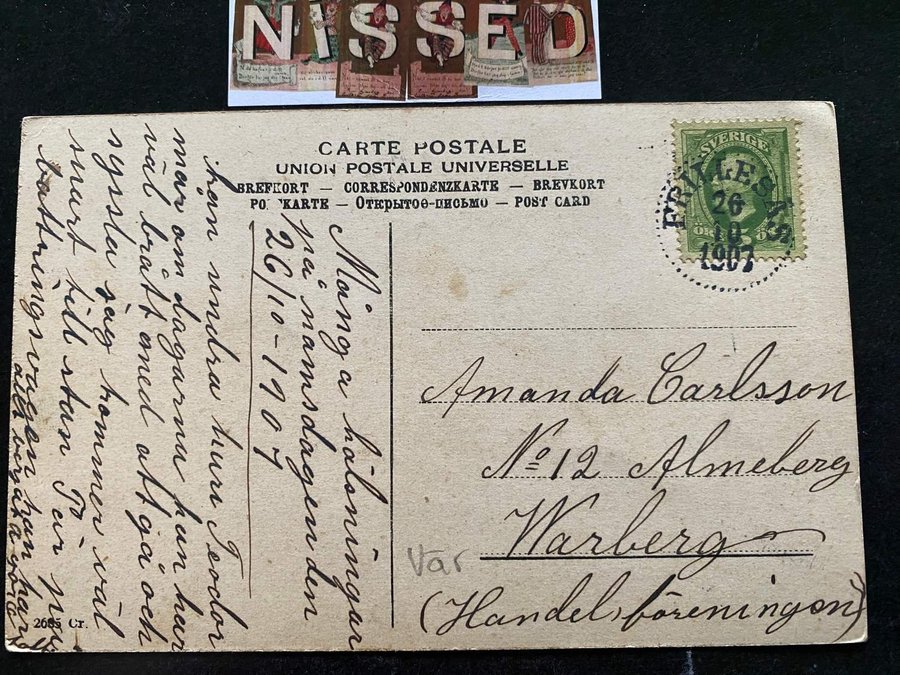 NISSED
CARTE POSTALE
UNION POSTALE UNIVERSELLE
BREFKORT — CORRESPONDENZKARTE — BREVKORT
KARTE — Открытое-письмо — POST CARD
SVERIGE
FRILLESÅS
26
10
1907
Många hälsningar
på namsdagen den
26/10-1907
han undra huru Teodor
mår om dagarna han har
väl bråt med att gå och
syssla jag kommer väl
snart till stan Pär
battringsvägen han har
Amanda Carlsson
No 12 Almeberg
Warberg
(Handelsföreningen)
Var
2685 Cr.